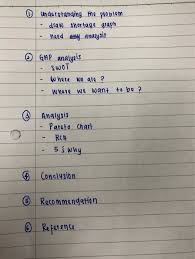 ① Understanding the problem
- draw shortage graph
- need any analysis
② GAP analysis
- SWOT
- Where we are ?
- Where we want to be ?
③ Analysis
- Pareto chart
- RCA
- 5 S Why
④ Conclusion
⑤ Recommendation
⑥ Reference